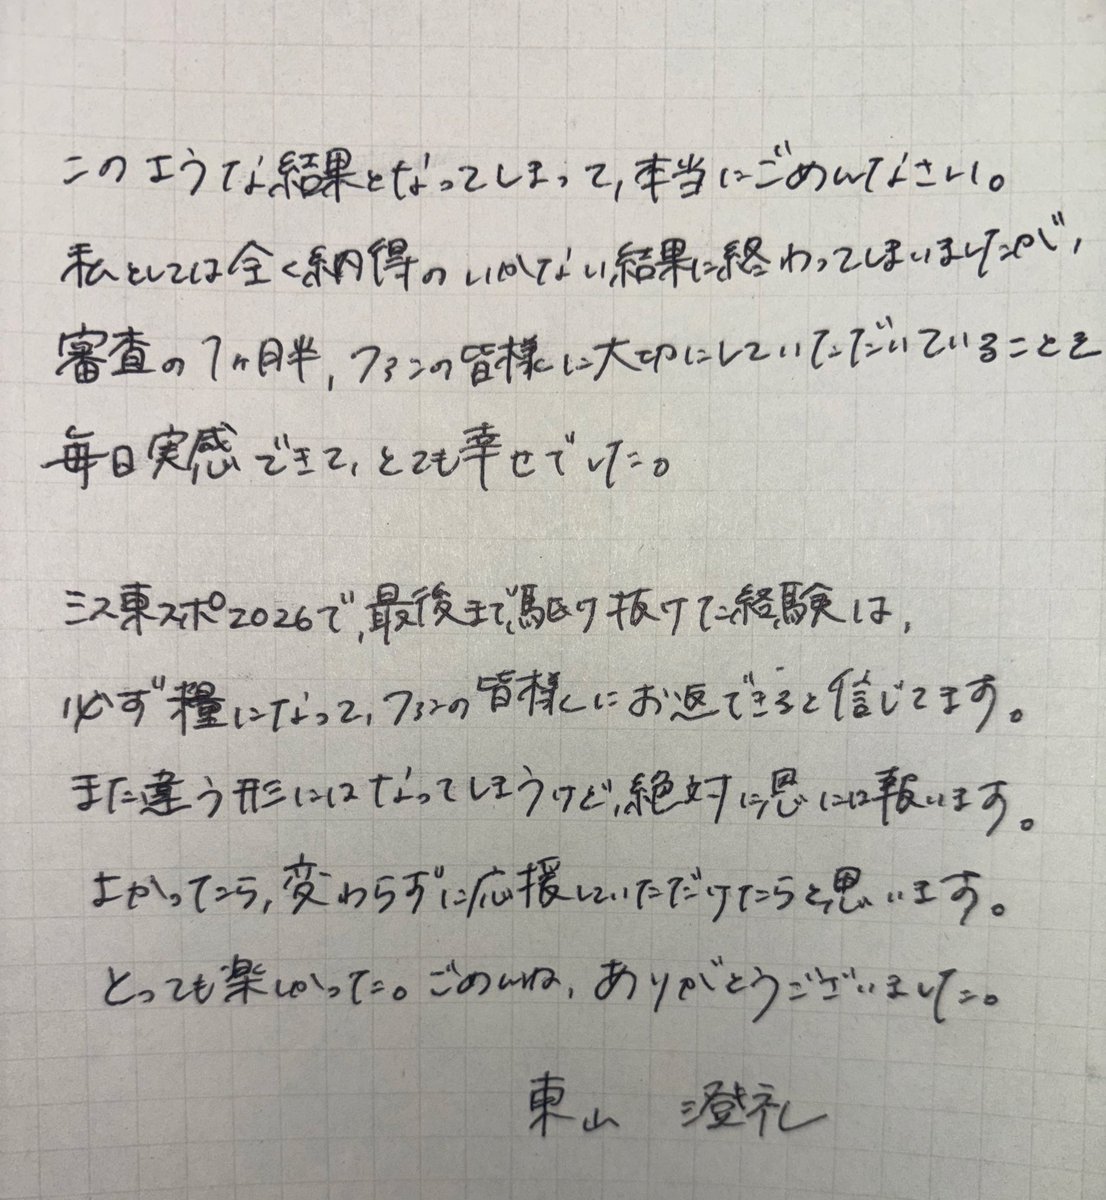 このような結果となってしまって、本当にごめんなさい。
私としては全く納得のいかない結果に終わってしまいましたが、
審査の1ヶ月半、ファンの皆様に大切にしていただいていることを
毎日実感できて、とても幸せでした。
ミス東スポ2026で、最後まで駆け抜けた経験は、
必ず糧になって、ファンの皆様にお返しできると信じてます。
また違う形にはなってしまうけど、絶対に恩には報います。
よかったら、変わらずに応援していただけたらと思います。
とっても楽しかった。ごめんね、ありがとうございました。
東山 澄礼